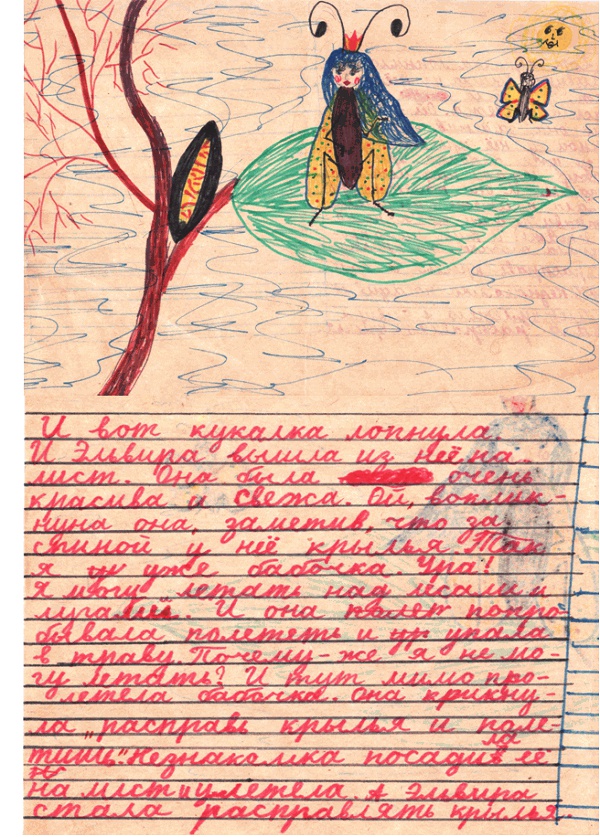 И вот кукалка лопнула
И Эльвира вышла из неё на
лист. Она была очень
красива и свежа. Ой, воплик-
нина она, заметив, что за
спиной у неё крылья. Так
я уже бабочка. Ура!
Я могу летать над лесами и
лугами. И она полет попро-
бывала полететь и упала
в траву. Почему-же я не мо-
гу летать? И тут мимо про-
летела бабочка. Она крикну-
ла „расправь крылья и поле-
тишь". Незнакомка посадила её
на лист и улетела. А Эльвира
стала расправлять крылья.